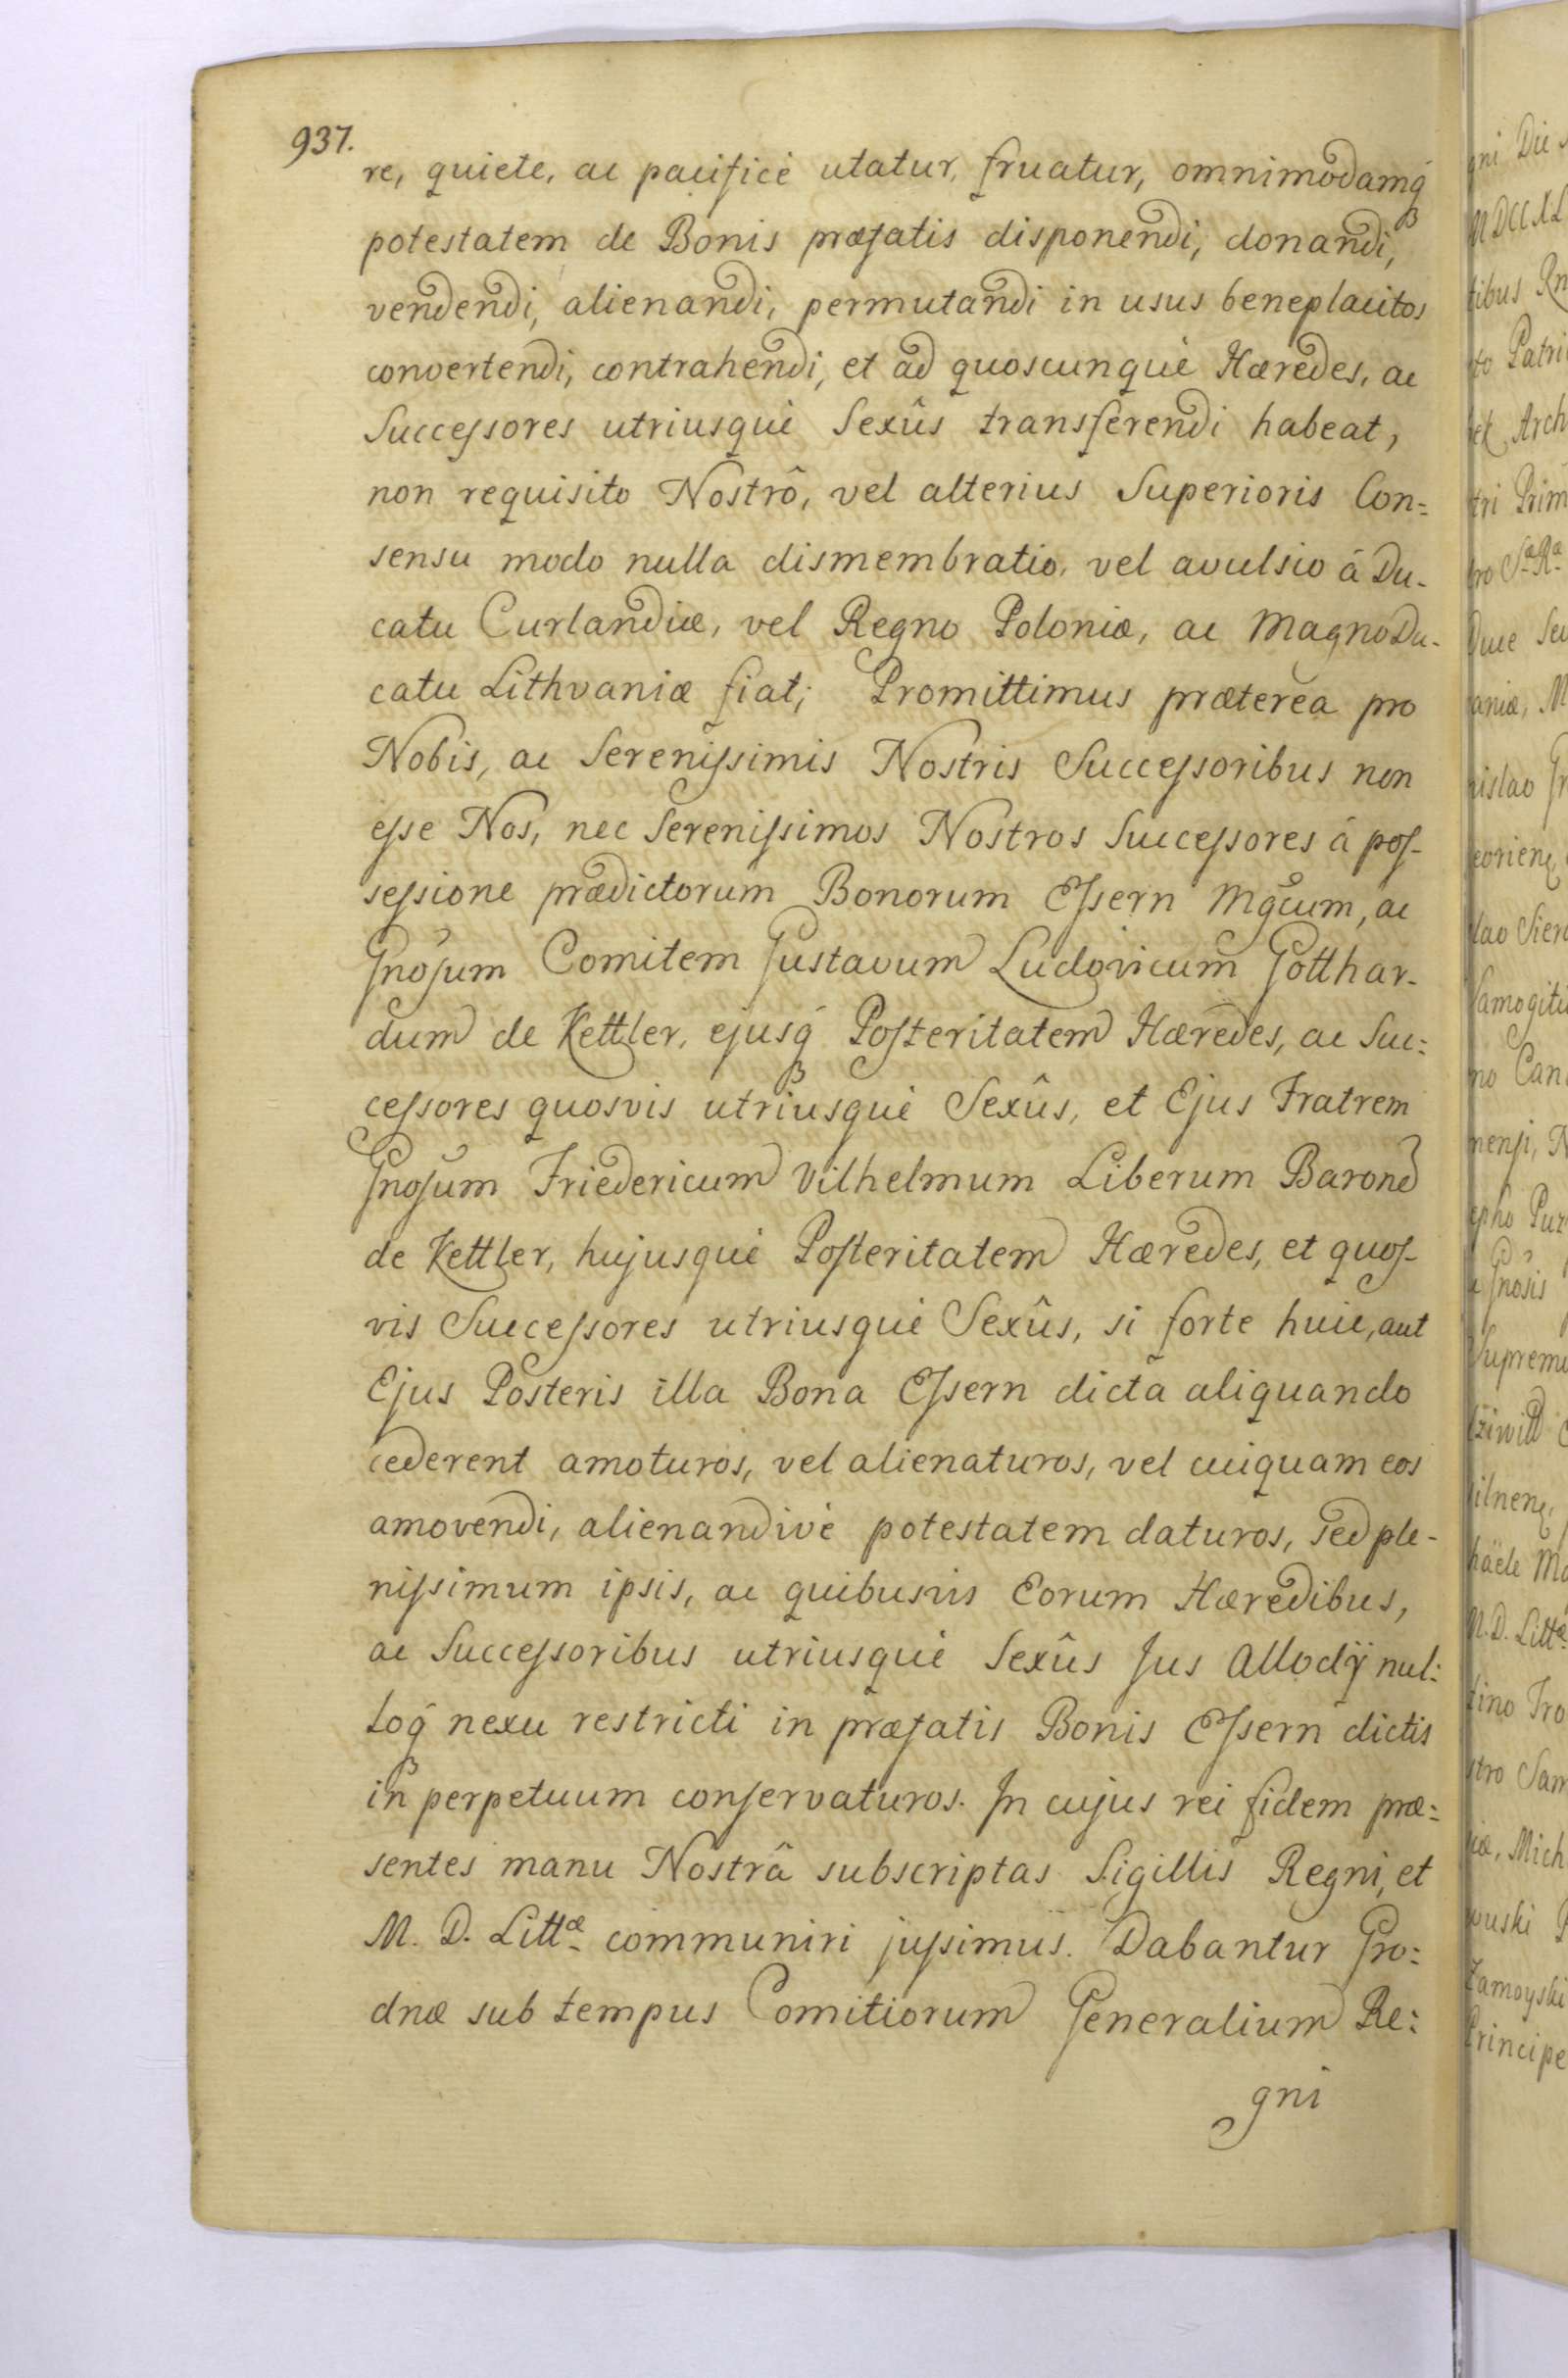 937.
re, quiete, ac pacificè utatur, fruatur, omnimodamq́
potestatem de Bonis præfatis disponendi, donandi,
vendendi, alienandi, permutandi in usus beneplacitos
convertendi, contrahendi, et ad quoscunquè Hæredes, ac
Successores utriusquè Sexûs transferendi habeat,
non requisito Nostrô, vel alterius Superioris Con=
sensu modo nulla dismembratio, vel avulsio â Du-
catu Curlandiæ, vel Regno Poloniæ, ac Magno Du-
catu Lithvaniæ fiat; Promittimus præterea pro
Nobis, ac Serenissimis Nostris Successoribus non
esse Nos, nec Serenissimos Nostros Successores â pos-
sessione prædictorum Bonorum Essern Mgcum, ac
Gnosum Comitem Gustavum Ludovicum Gotthar-
dum de Kettler, ejusq́ Posteritatem Hæredes, ac Suc=
cessores quosvis utriusquè Sexûs, et Ejus Fratrem
Gnosum Friedericum Vilhelmum Liberum Barone
de Kettler, hujusquè Posteritatem Hæredes, et quos-
vis Successores utriusquè Sexûs, si forte huic, aut
Ejus Posteris illa Bona Essern dicta aliquando
cederent amoturos, vel alienaturos, vel cuiquam eos
amovendi, alienandivè potestatem daturos, sed ple-
nissimum ipsis, ac quibusvis Eorum Hæredibus,
ac Successoribus utriusquè Sexûs Jus Allodÿ nul=
loq́ nexu restricti in præfatis Bonis Essern dictis
in perpetuum conservaturos. In cujus rei fidem præ=
sentes manu Nostrâ subscriptas Sigillis Regni, et
M. D. Littæ communiri jussimus. Dabantur Gro=
dnæ sub tempus Comitiorum Generalium Re=
gni